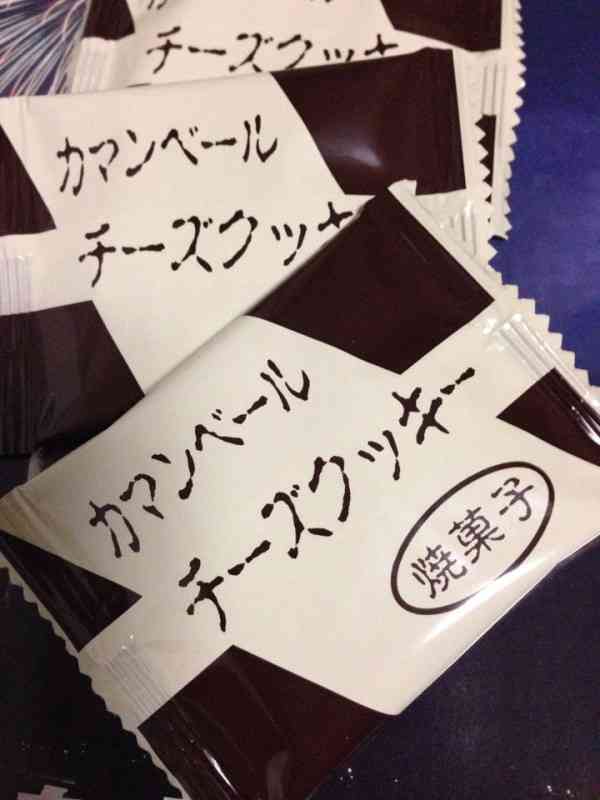 チーズクッキ
カマンベール
チーズクッキ
カマンベール
チーズクッキー
焼菓子